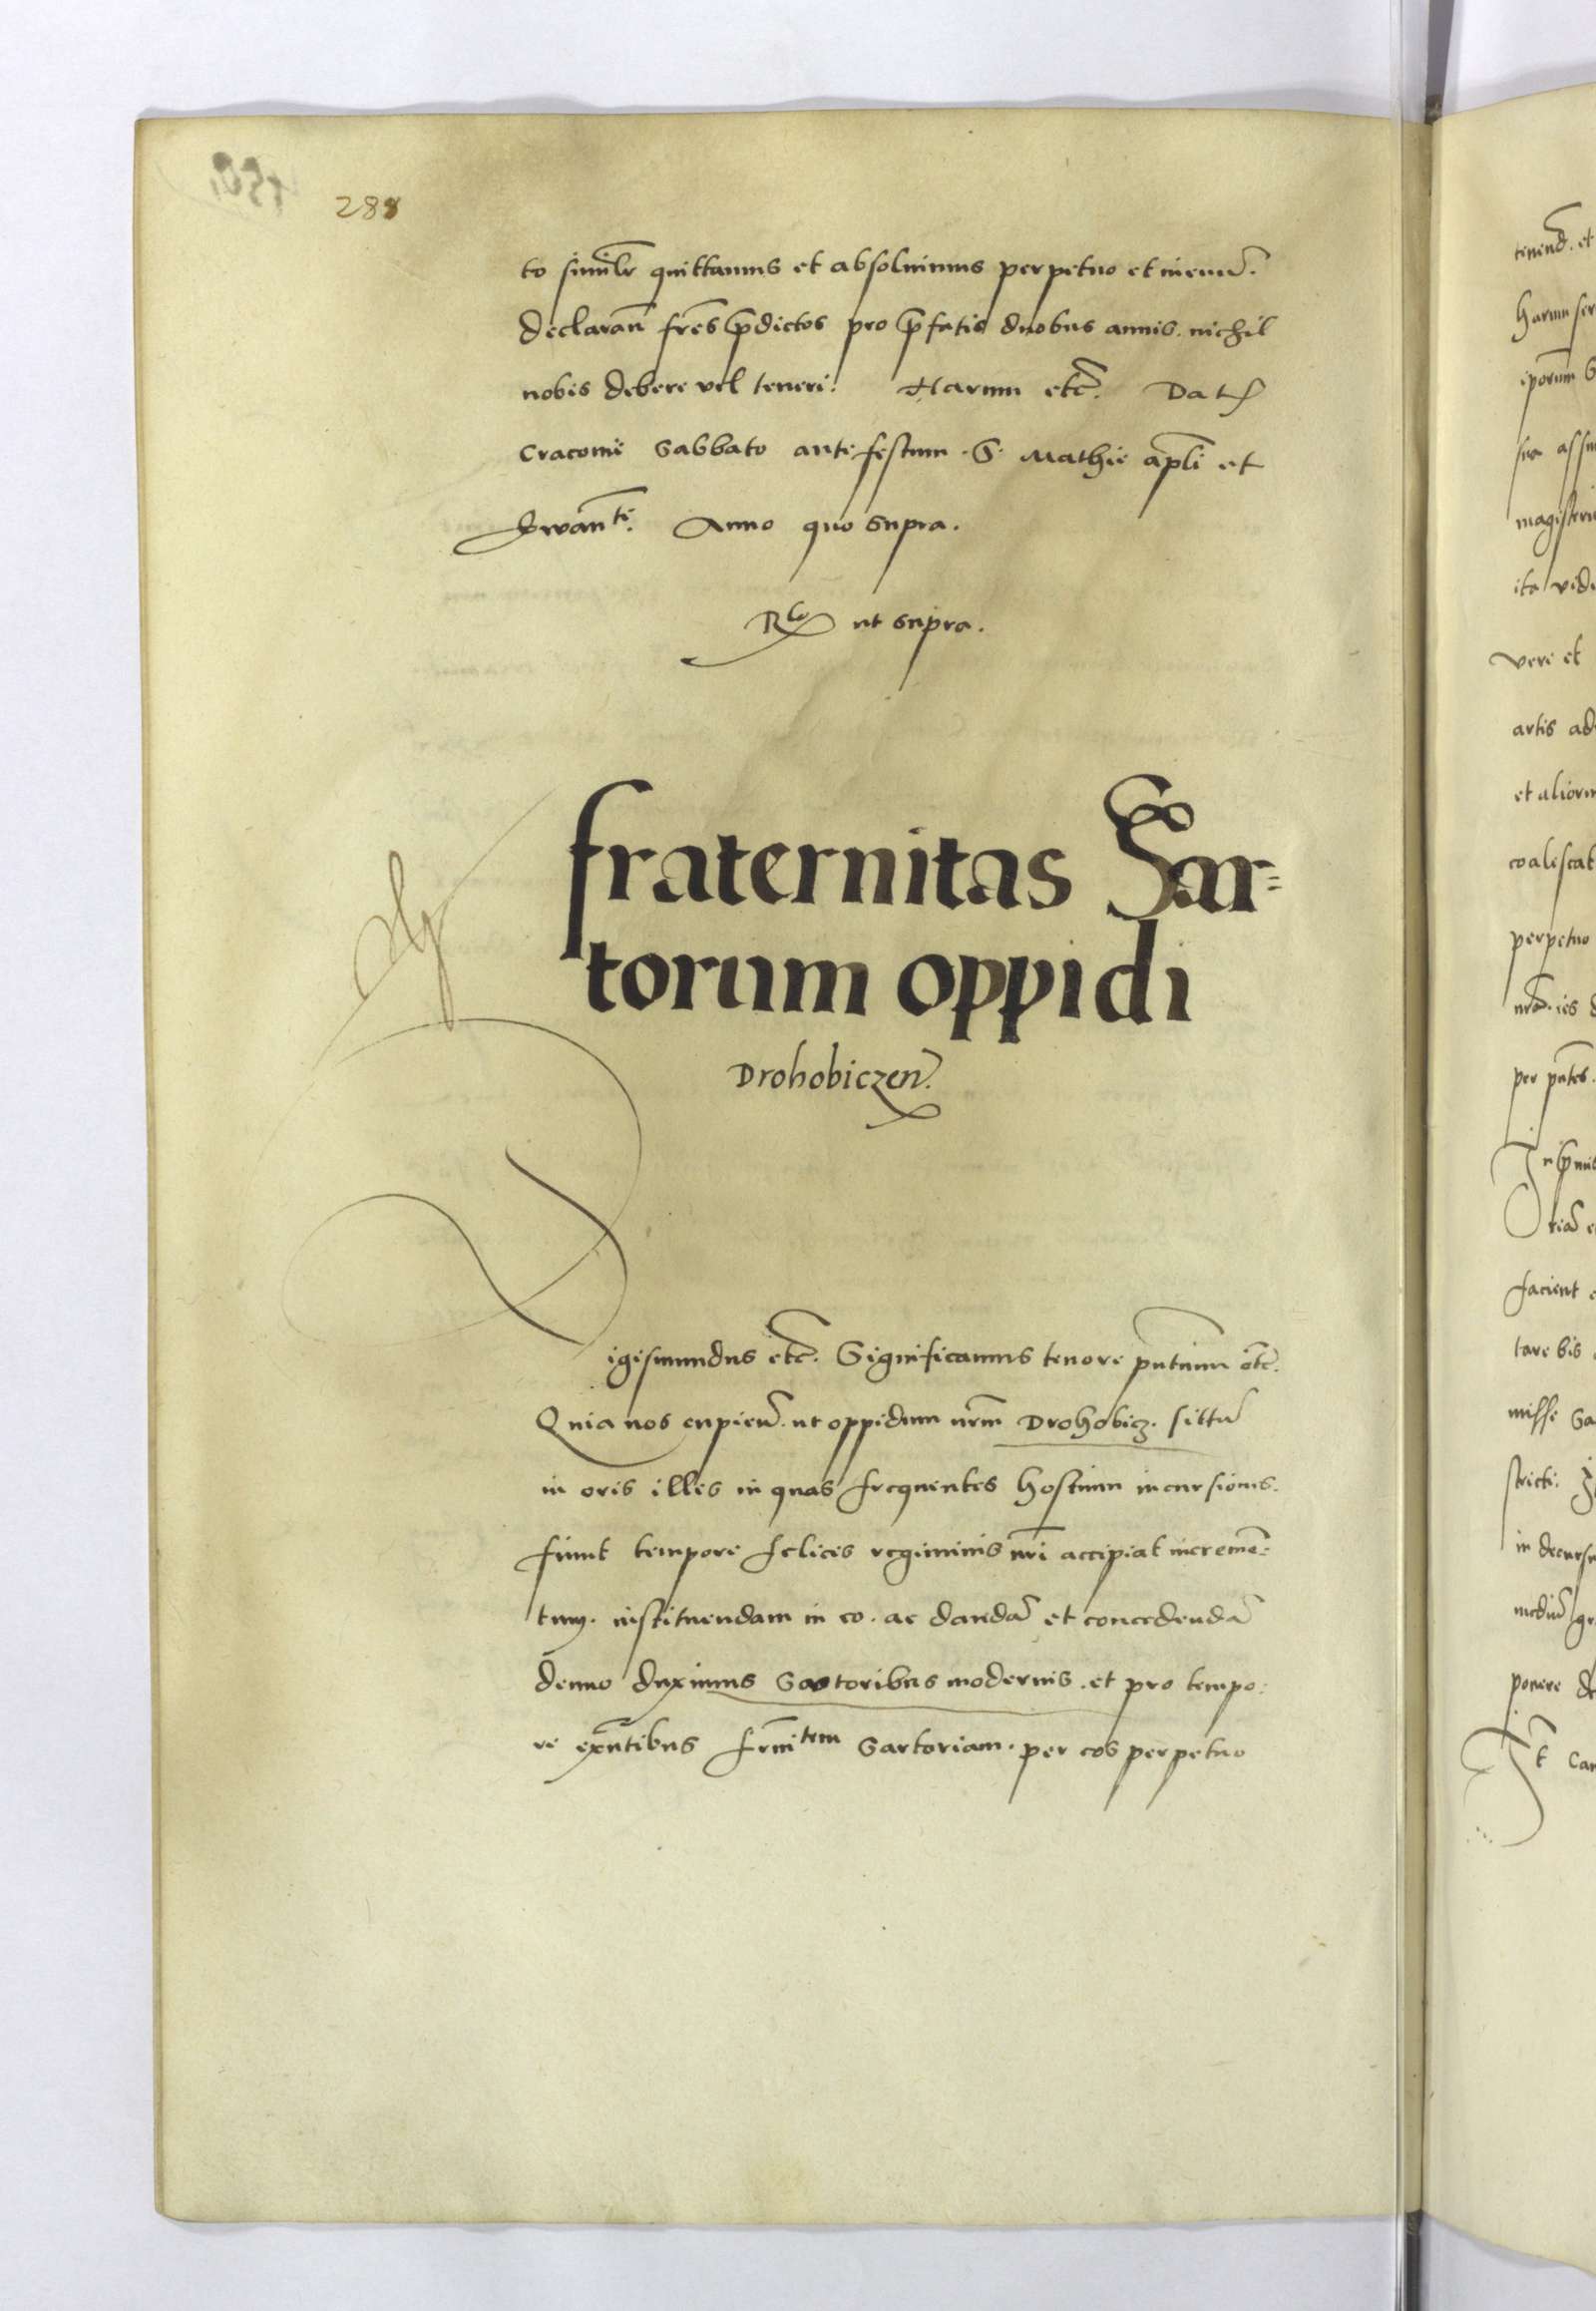 288
to similr quittamus et absolvimus perpetuo et in evum.
declaran fres predictos pro prefatis duobus annis. nichil
nobis debere vel teneri. Harum etc. Dat
Cracovie Sabbato ante festum S. Mathie apli et
Ewante. Anno quo supra.
Rlo ut supra.
fraternitas Sar=
torum oppidi
Drohobiczen.
igismundus etc. Significamus tenore pntium etc.
Quia nos cupien. ut oppidum nrm Drohobicz. situ
in oris illis in quas frequentes hostium incursiones.
fiunt tempore felicis regiminis nri accipiat incremen=
tum. instituendam in eo. ac danda et concedenda
denuo duximus Sartoribus modernis. et pro tempo=
re exntibus frnitem Sartoriam. per eos perpetuo
tenend. et
harum ser
iporum
sua
magisteriu
ita vide
vere et
artis ad
et alioru
coalescat
perpetuo
per pntes.
In primis
facient
misse Sa
in decursu
mediu gr
ponere de
It Car